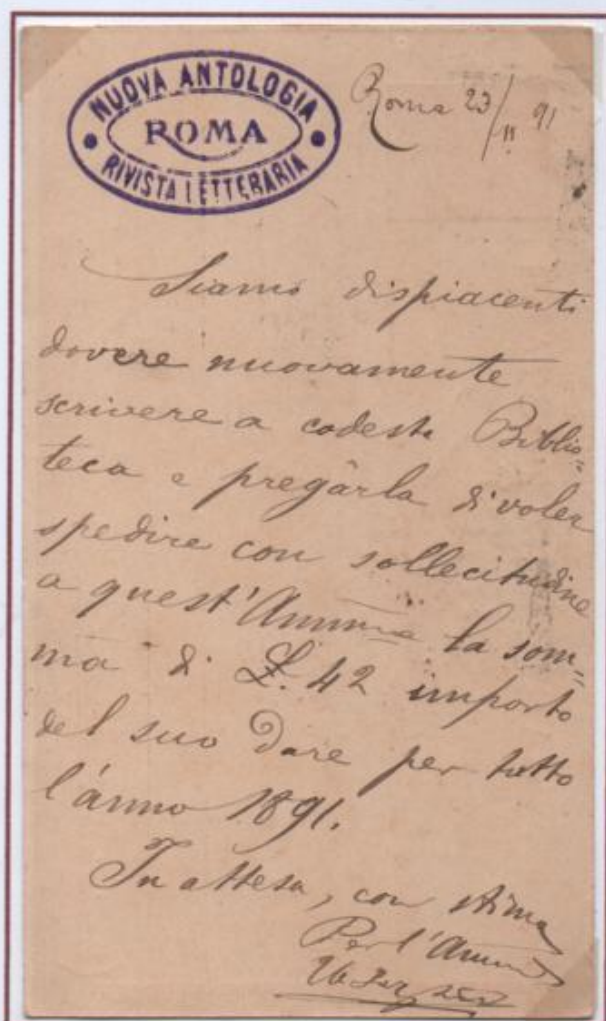 NUOVA ANTOLOGIA
ROMA
RIVISTA LETTERARIA
Roma 23/11 91
Siamo dispiacenti
dovere nuovamente
scrivere a codesta Biblio=
teca e pregarla di voler
spedire con sollecitudine
a quest'Ammne la som=
ma di L. 42 importo
del suo Dare per tutto
l'anno 1891.
In attesa, con stima
Per l'Ammne